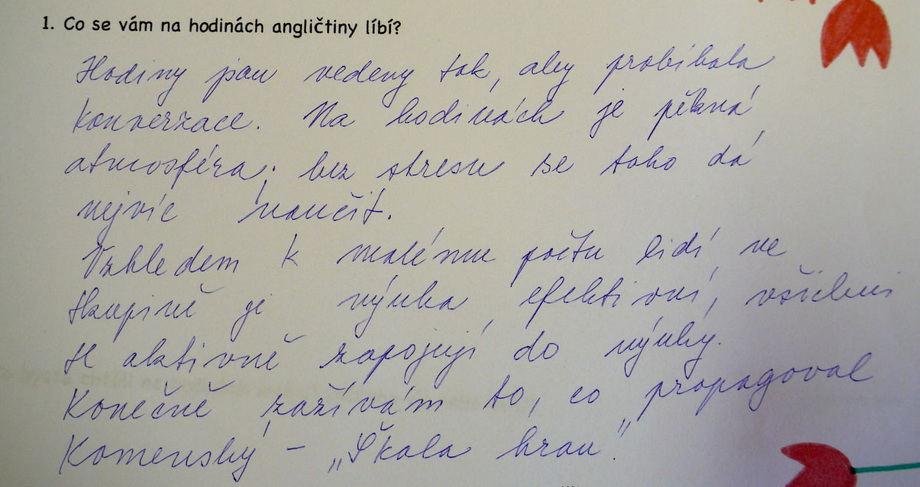 1. Co se vám na hodinách angličtiny líbí?
Hodiny jsou vedeny tak, aby probíhala
konverzace. Na hodinách je pěkná
atmosféra; bez stresu se toho dá
nejvíc naučit.
Vzhledem k malému počtu lidí ve
skupině je výuka efektivní, všichni
se aktivně zapojují do výuky.
Konečně zažívám to, co propagoval
Komenský – „Škola hrou".